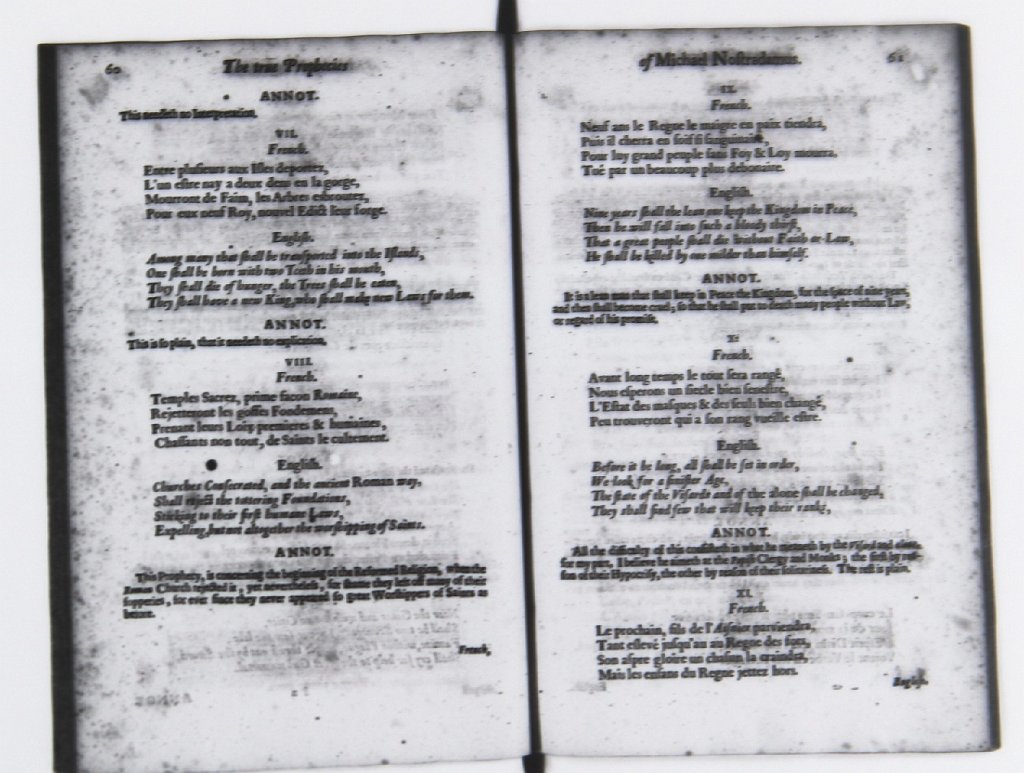 60 The true Prophecies
ANNOT.
This needeth no Interpretation.
VII.
French.
Entre plusieurs aux Isles deportez,
L'un estre nay a deux dens en la gorge,
Mourront de Faim, les Arbres esbroutez,
Pour eux neuf Roy, nouvel Edict leur forge.
English.
Among many that shall be transported into the Islands,
One shall be born with two Teeth in his mouth,
They shall die of hunger, the Trees shall be eaten,
They shall have a new King, who shall make new Laws for them.
ANNOT.
This is so plain, that it needeth no explication.
VIII.
French.
Temples Sacrez, prime facon Romaine,
Rejetteront les goffes Fondemens,
Prenant leurs Loix premieres & humaines,
Chassants non tout, de Saints le cultement.
English.
Churches Consecrated, and the ancient Roman way,
Shall reject the tottering Foundations,
Sticking to their first humane Laws,
Expelling, but not altogether the worshipping of Saints.
ANNOT.
This Prophecy, is concerning the beginning of the Reformed Religion, when the
Roman Church rejected it, yet nevertheless, for shame they left off many of their
fopperies, for ever since they never appeared so great Worshippers of Saints as
before.
French,
of Michael Nostradamus. 61
IX.
French.
Neuf ans le Regne le maigre en paix tiendra,
Puis il cherra en soif si sanguinaire,
Pour luy grand peuple sans Foy & Loy mourra.
Tué par un beaucoup plus debonaire.
English.
Nine years shall the lean one keep the Kingdom in Peace,
Then he will fall into such a bloody thirst,
That a great people shall die without Faith or Law,
He shall be killed by one milder than himself.
ANNOT.
It is a lean man that shall keep in Peace the Kingdom, for the space of nine years,
and then shall become cruel, so that he shall put to death many people without Law,
or regard of his promise.
X.
French.
Avant long temps le tout sera rangé,
Nous esperons un siecle bien senestre,
L'Estat des masques & des seuls bien changé,
Peu trouveront qui a son rang vueille estre.
English.
Before it be long, all shall be set in order,
We look for a sinister Age,
The state of the Visards and of the alone shall be changed,
They shall find few that will keep their ranks,
ANNOT.
All the difficulty of this consisteth in what he meaneth by the Visard and alone,
for my part, I believe he aimeth at the Popish Clergy and Monks; the first by rea-
son of their Hypocrisy, the other by reason of their solitariness. The rest is plain.
XI.
French.
Le prochain, fils de l'Aisnier parviendra,
Tant eslevé jusqu'au au Regne des fors,
Son aspre gloire un chascun la craindra,
Mais les enfans du Regne jettez hors.
English.